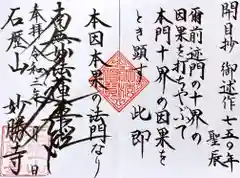 開目抄 御述作 七五〇年
聖辰
爾前迹門の十界の
因果を打ちやぶて
本門十界の因果を
とき顕す 此即
本因本果の法門なり
南無妙法蓮華経
奉拝 令和
月 日
石歴山 妙勝寺